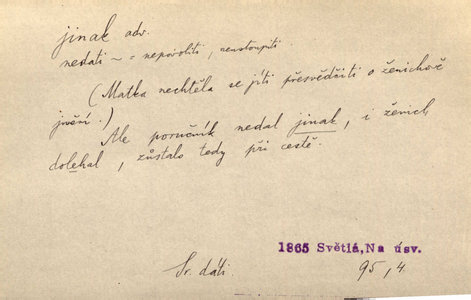 jinak adv.
nedati ~ = nepovoliti, neustoupiti.
(Matka nechtěla se jíti přesvědčiti o ženichově
jmění.)
Ale poručník nedal jinak, i ženich
doléhal, zůstalo tedy při cestě.
1865 Světlá, Na úsv.
Sr. dáti. 95, 4.